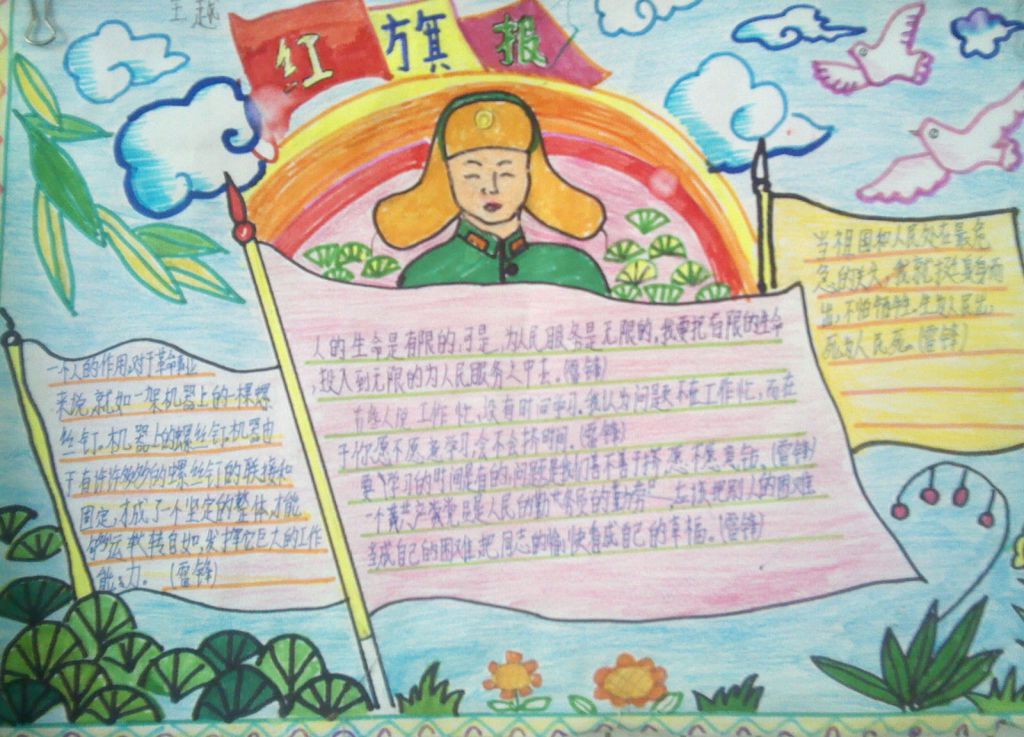 王越
红旗报
当祖国和人民处在最危
急的关头,我就挺身而
出,不怕牺牲。生为人民生,
死为人民死。(雷锋)
人的生命是有限的,可是,为人民服务是无限的,我要把有限的生命
,投入到无限的为人民服务之中去。(雷锋)
有些人说工作忙,没有时间学习。我认为问题不在工作忙,而在
于你愿不愿意学习,会不会挤时间。(雷锋)
要学习的时间是有的,问题是我们善不善于挤,愿不愿意钻。(雷锋)
一个共产党员是人民的勤务员 应该把别人的困难
当成自己的困难,把同志的愉快看成自己的幸福。(雷锋)
一个人的作用,对于革命事业
来说,就如一架机器上的一棵螺
丝钉。机器上的螺丝钉,机器由
于有许许多多的螺丝钉的联接和
固定,才成了一个坚定的整体,才能
够运转自如,发挥它巨大的工作
能力。(雷锋)